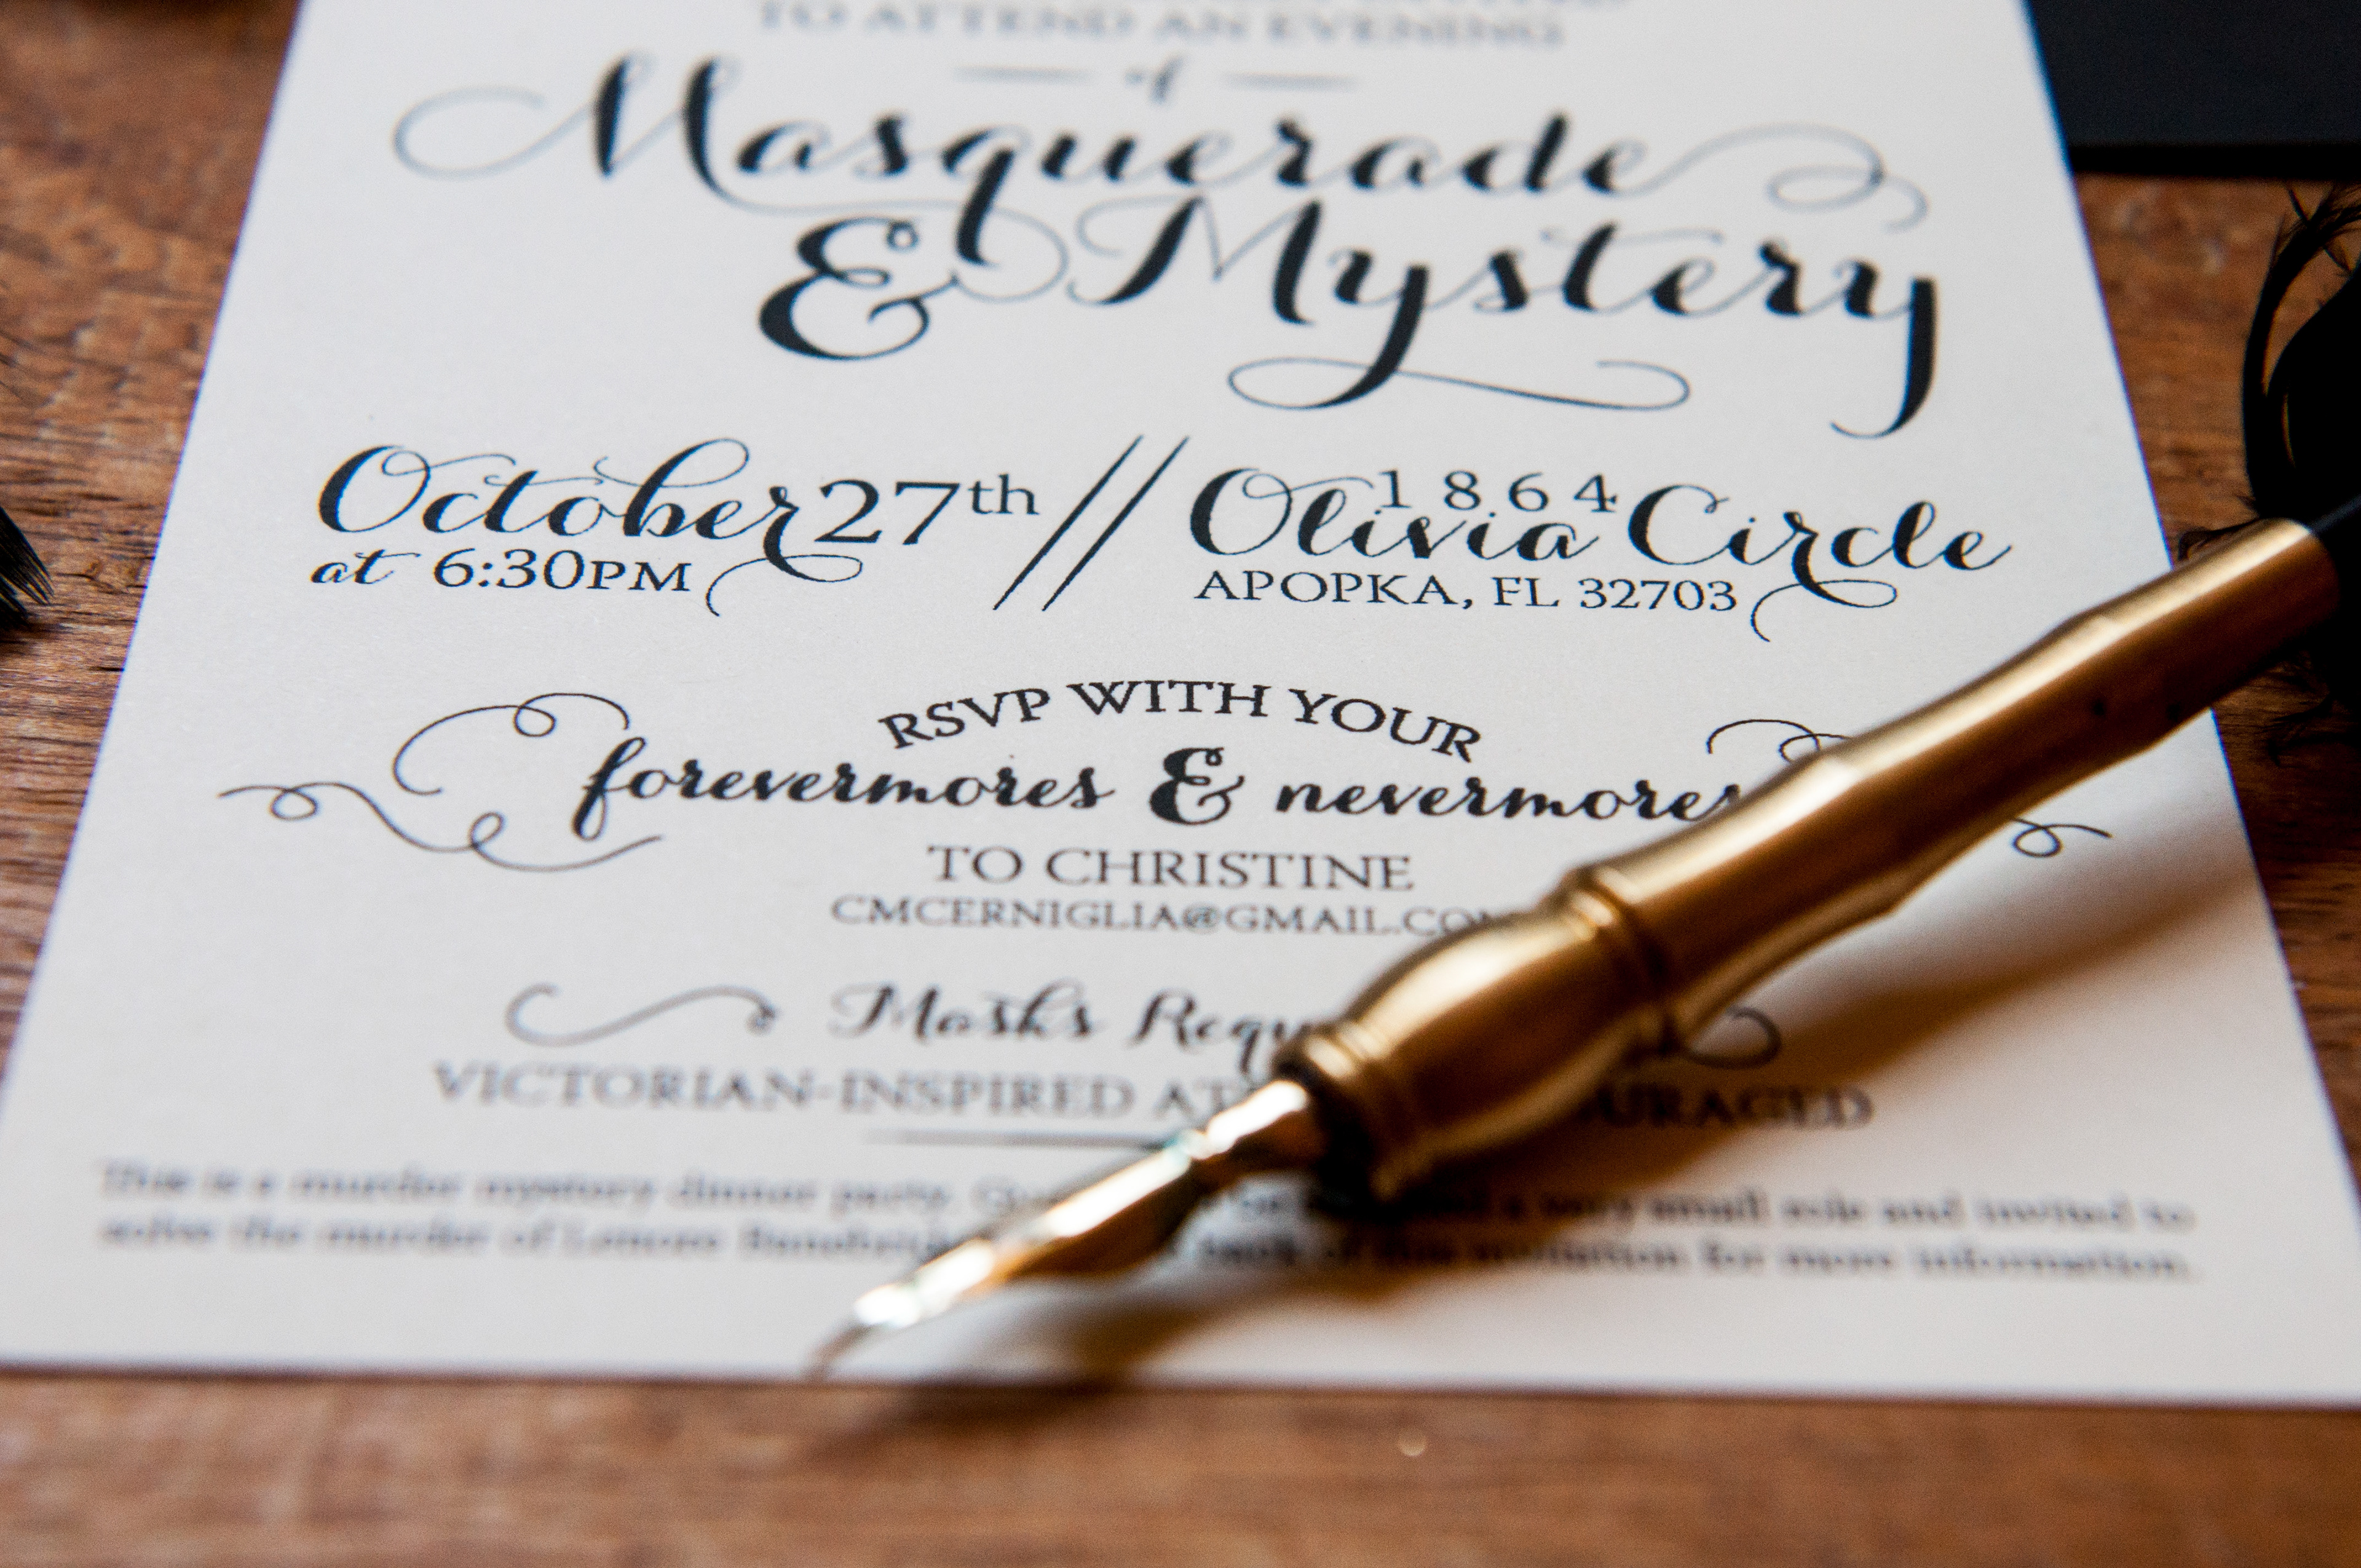 TO ATTEND AN EVENING
of
Masquerade
& Mystery
October 27th // 1864 Olivia Circle
at 6:30PM APOPKA, FL 32703
RSVP WITH YOUR
forevermores & nevermores
TO CHRISTINE
CMCERNIGLIA@GMAIL.COM
Masks
VICTORIAN-INSPIRED
This is a murder mystery dinner party. a very small role and invited to
solve the murder of Lenore back of this invitation for more information.